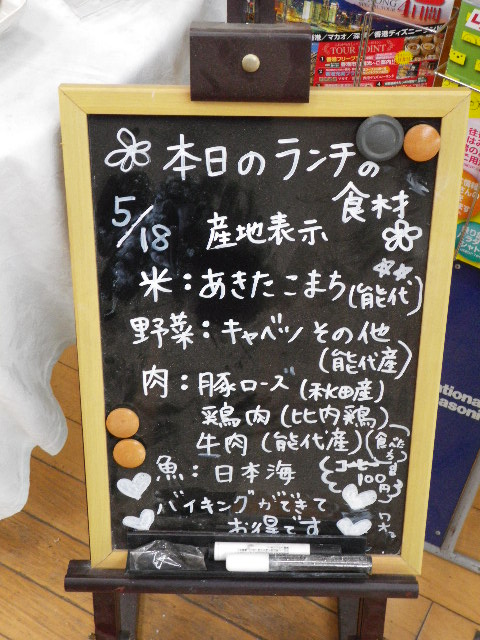 本日のランチの
食材
5/18 産地表示
米：あきたこまち(能代)
野菜：キャベツ その他
(能代産)
肉：豚ロース゛(秋田産)
鶏肉(比内鶏)
牛肉(能代産)
魚：日本海
コーヒー
100円
バイキングができて
お得です
TOUR POINT